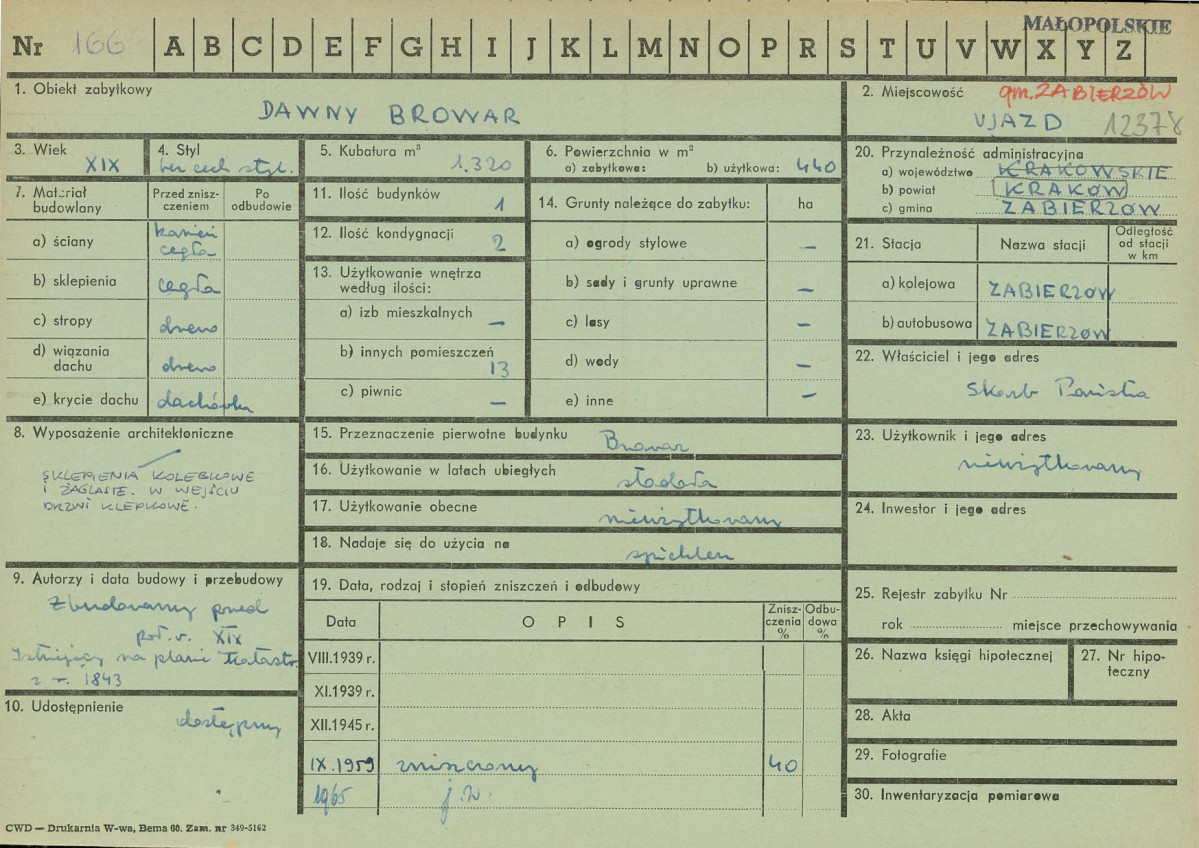 MAŁOPOLSKIE
Nr 166 A B C D E F G H I J K L M N O P R S T U V W X Y Z
1. Obiekt zabytkowy
DAWNY BROWAR
2. Miejscowość gm. ZABIERZÓW
UJAZD 12378
3. Wiek
XIX
4. Styl
bez cech styl.
5. Kubatura m³
1.320
6. Powierzchnia w m²
a) zabytkowa: b) użytkowa: 440
7. Materiał budowlany
Przed zniszczeniem
Po odbudowie
a) ściany kamień
cegła
b) sklepienia cegła
c) stropy drewno
d) wiązania dachu drewno
e) krycie dachu dachówka
11. Ilość budynków 1
12. Ilość kondygnacji 2
13. Użytkowanie wnętrza
według ilości:
a) izb mieszkalnych —
b) innych pomieszczeń 13
c) piwnic —
14. Grunty należące do zabytku: ha
a) ogrody stylowe —
b) sady i grunty uprawne —
c) lasy —
d) wody —
e) inne —
20. Przynależność administracyjna
a) województwo KRAKOWSKIE
b) powiat KRAKÓW
c) gmina ZABIERZÓW
21. Stacja Nazwa stacji Odległość
od stacji
w km
a) kolejowa ZABIERZÓW
b) autobusowa ZABIERZÓW
22. Właściciel i jego adres
Skarb Państwa
8. Wyposażenie architektoniczne
SKLEPIENIA KOLEBKOWE
I ŻAGLASTE. W WEJŚCIU
DRZWI KLEPKOWE.
15. Przeznaczenie pierwotne budynku Browar
16. Użytkowanie w latach ubiegłych stodoła
17. Użytkowanie obecne nieużytkowany
18. Nadaje się do użycia na spichlerz
23. Użytkownik i jego adres
nieużytkowany
24. Inwestor i jego adres
9. Autorzy i data budowy i przebudowy
Zbudowany przed
poł. w. XIX
Istniejący na planie katastr.
z r. 1843
10. Udostępnienie
dostępny
19. Data, rodzaj i stopień zniszczeń i odbudowy
Data OPIS Zniszczenia % Odbudowa %
VIII.1939 r.
XI.1939 r.
XII.1945 r.
IX.1959 zniszczony 40
1965 j.w.
25. Rejestr zabytku Nr
rok miejsce przechowywania
26. Nazwa księgi hipotecznej
27. Nr hipoteczny
28. Akta
29. Fotografie
30. Inwentaryzacja pomiarowa
CWD — Drukarnia W-wa, Bema 60. Zam. nr 349-5162